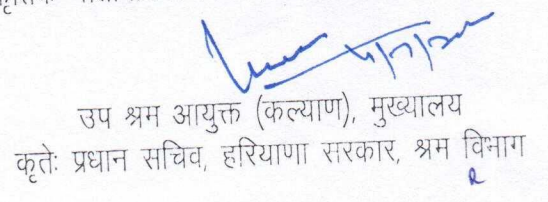 उप श्रम आयुक्त (कल्याण), मुख्यालय
कृतेः प्रधान सचिव, हरियाणा सरकार, श्रम विभाग